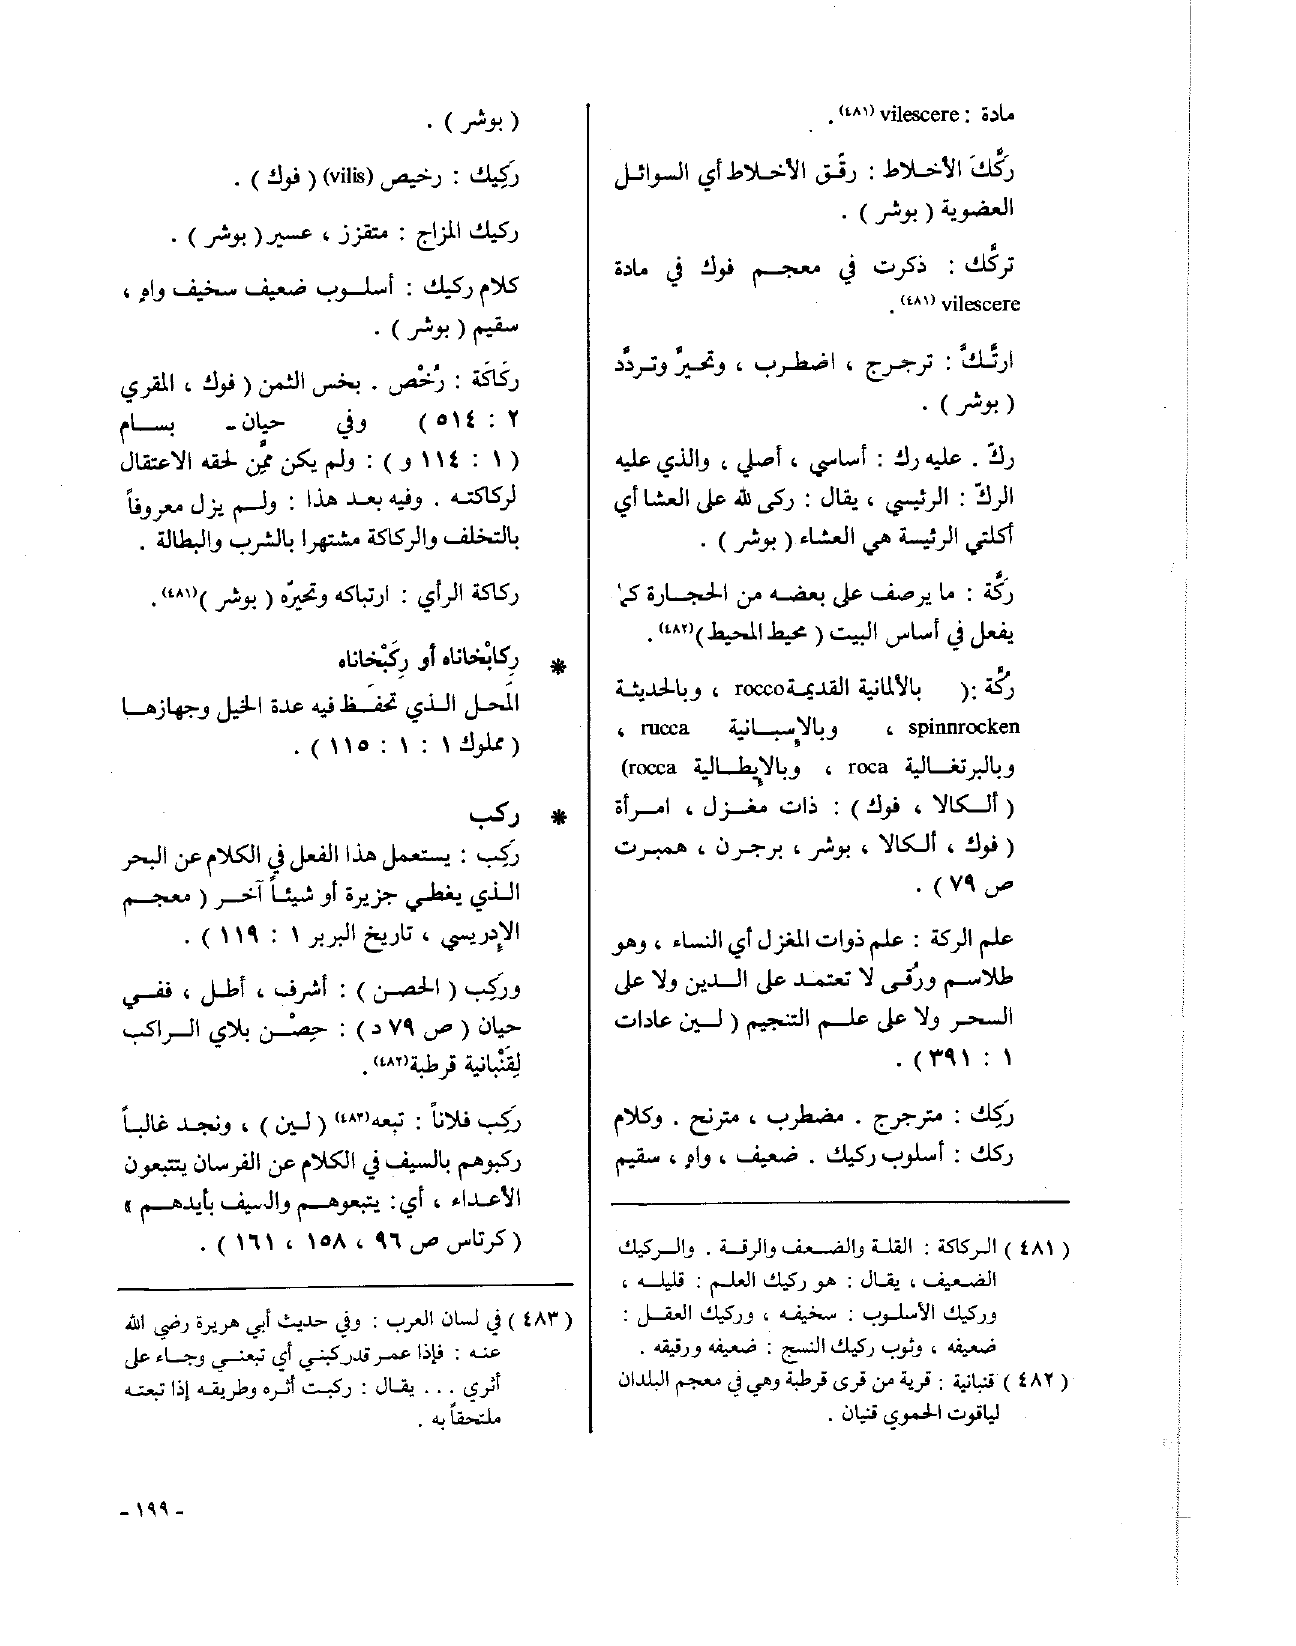 مادة : vilescere (٤٨١) .
ركَّكَ الأخلاط : رقّق الأخلاط أي السوائل
العضوية ( بوشر ) .
تركَّك : ذكرت في معجم فوك في مادة
vilescere (٤٨١) .
ارتَّكَّ : ترجرج ، اضطرب ، وتحيَّر وتردَّد
( بوشر ) .
ركّ . عليه رك : أساسي ، أصلي ، والذي عليه
الركّ : الرئيسي ، يقال : ركى لله على العشا أي
أكلتي الرئيسة هي العشاء ( بوشر ) .
ركَّة : ما يرصف على بعضه من الحجارة كما
يفعل في أساس البيت ( محيط المحيط )(٤٨٢) .
ركَّة :( بالألمانية القديمة rocco ، وبالحديثة
spinnrocken ، وبالإسبانية rucca ،
وبالبرتغالية roca ، وبالإيطالية rocca)
( ألكالا ، فوك ) : ذات مغزل ، امرأة
( فوك ، ألكالا ، بوشر ، برجرن ، همبرت
ص ٧٩ ) .
علم الركة : علم ذوات المغزل أي النساء ، وهو
طلاسم ورُقى لا تعتمد على الدين ولا على
السحر ولا على علم التنجيم ( لين عادات
١ : ٣٩١ ) .
ركِك : مترجرج . مضطرب ، مترنح . وكلام
ركك : أسلوب ركيك . ضعيف ، واه ، سقيم
( ٤٨١ ) الركاكة : القلة والضعف والرقة . والركيك
الضعيف ، يقال : هو ركيك العلم : قليله ،
وركيك الأسلوب : سخيفه ، وركيك العقل :
ضعيفه ، وثوب ركيك النسج : ضعيفه ورقيقه .
( ٤٨٢ ) قنبانية : قرية من قرى قرطبة وهي في معجم البلدان
لياقوت الحموي قنبان .
( بوشر ) .
رَكِيك : رخيص (vilis) ( فوك ) .
ركيك المزاج : متقزز ، عسير ( بوشر ) .
كلام ركيك : أسلوب ضعيف سخيف واه ،
سقيم ( بوشر ) .
ركَاكَة : رُخْص . بخس الثمن ( فوك ، المقري
٢ : ٥١٤ ) وفي حيان - بسام
( ١ : ١١٤ و ) : ولم يكن ممَّن لحقه الاعتقال
لركاكته . وفيه بعد هذا : ولم يزل معروفاً
بالتخلف والركاكة مشتهرا بالشرب والبطالة .
ركاكة الرأي : ارتباكه وتحيرّه ( بوشر )(٤٨١) .
* رِكابْخاناه أو رِكَبْخاناه
المَحل الذي تحفَظ فيه عدة الخيل وجهازها
( مملوك ١ : ١ : ١١٥ ) .
* ركب
ركِب : يستعمل هذا الفعل في الكلام عن البحر
الذي يغطي جزيرة أو شيئاً آخر ( معجم
الإدريسي ، تاريخ البربر ١ : ١١٩ ) .
وركِب ( الحصن ) : أشرف ، أطل ، ففي
حيان ( ص ٧٩ د ) : حِصْن بلاي الراكب
لِقَنْبانية قرطبة(٤٨٢) .
ركِب فلاناً : تبعه(٤٨٣) ( لين ) ، ونجد غالباً
ركبوهم بالسيف في الكلام عن الفرسان يتتبعون
الأعداء ، أي : يتبعوهم والسيف بأيدهم »
( كرتاس ص ٩٦ ، ١٥٨ ، ١٦١ ) .
( ٤٨٣ ) في لسان العرب : وفي حديث أبي هريرة رضي الله
عنه : فإذا عمر قد ركبني أي تبعني وجاء على
أثري ... يقال : ركبت أثره وطريقه إذا تبعته
ملتحقاً به .
- ١٩٩ -